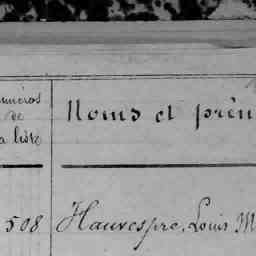 numéros
de
la liste
Noms et prén
508
Hauvespre, Louis M